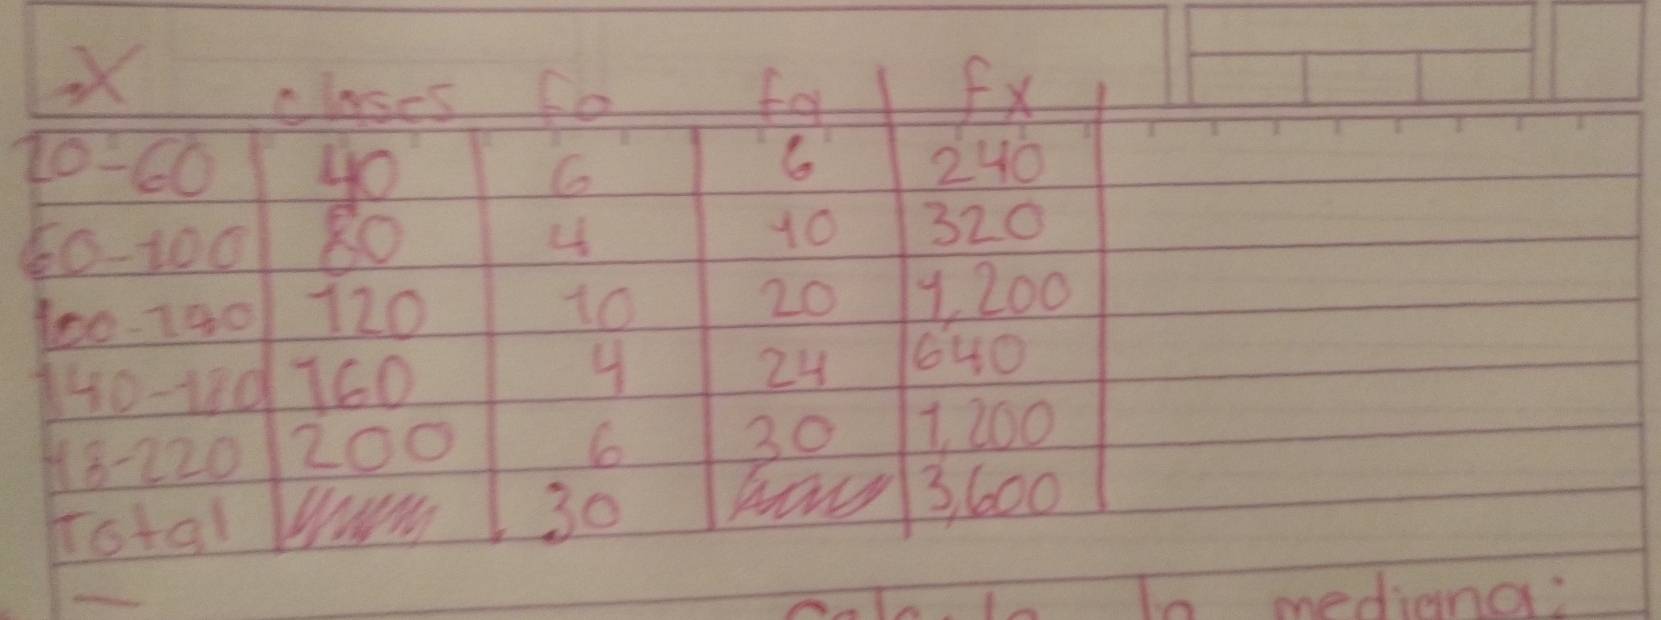 X clases fo fa fx
20-60 40 6 6 240
60-100 80 4 10 320
100-140 120 10 20 1,200
140-180 160 4 24 640
18-220 200 6 30 1,200
Total 30 3,600
la mediana: